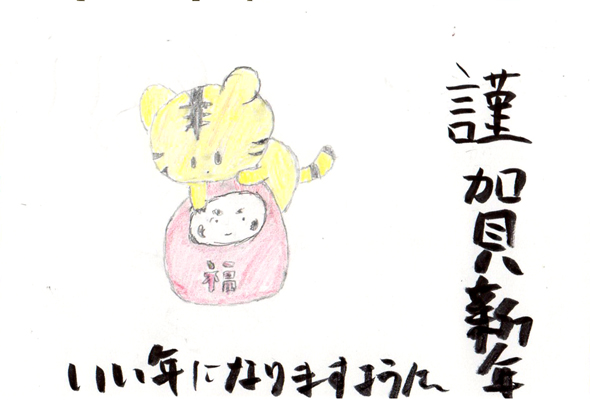 謹賀新年
福
いい年になりますように